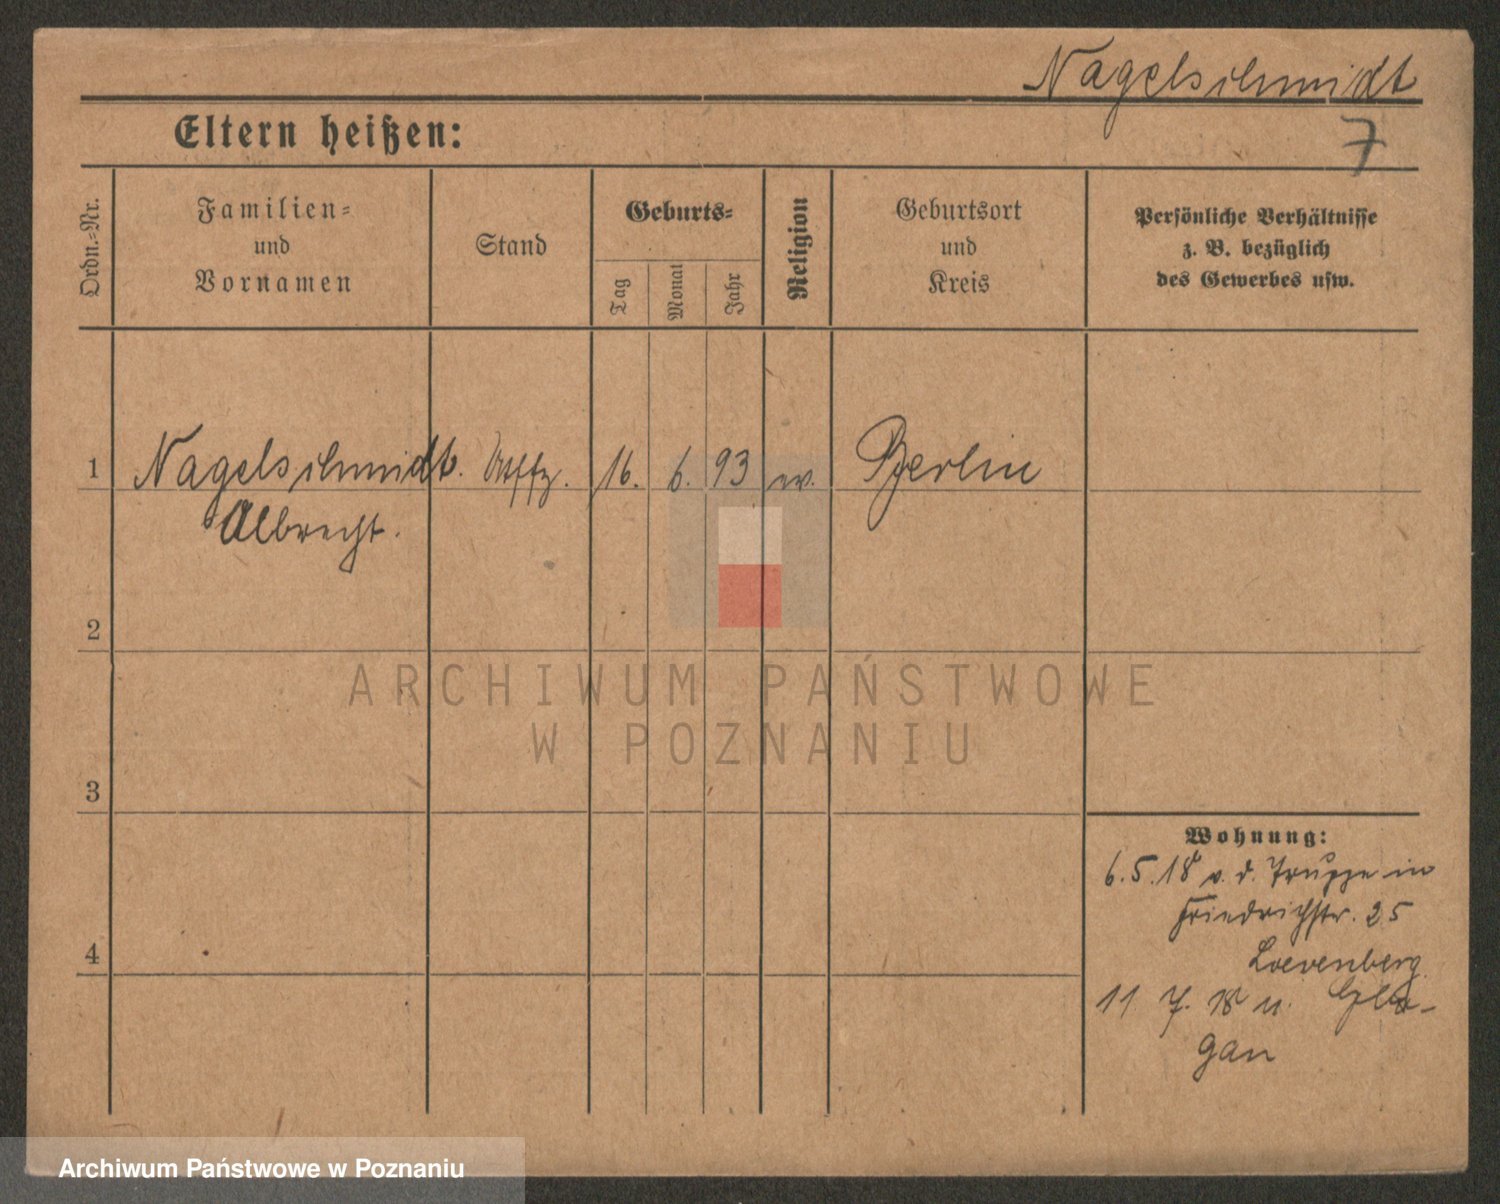 Nagelschmidt
7
Eltern heißen:
Ordn.-Nr.
Familien-
und
Vornamen
Stand
Geburts-
Tag
Monat
Jahr
Religion
Geburtsort
und
Kreis
Persönliche Verhältnisse
z. B. bezüglich
des Gewerbes usw.
1
Nagelschmidt. Utffz. 16. 6. 93 ev. Berlin
Albrecht.
2
ARCHIWUM PAŃSTWOWE
W POZNANIU
3
Wohnung:
6.5.18 v. d. Truppe in
Friedrichstr. 25
4
Loevenberg.
11 7. 18 n. Glo-
gau
Archiwum Państwowe w Poznaniu